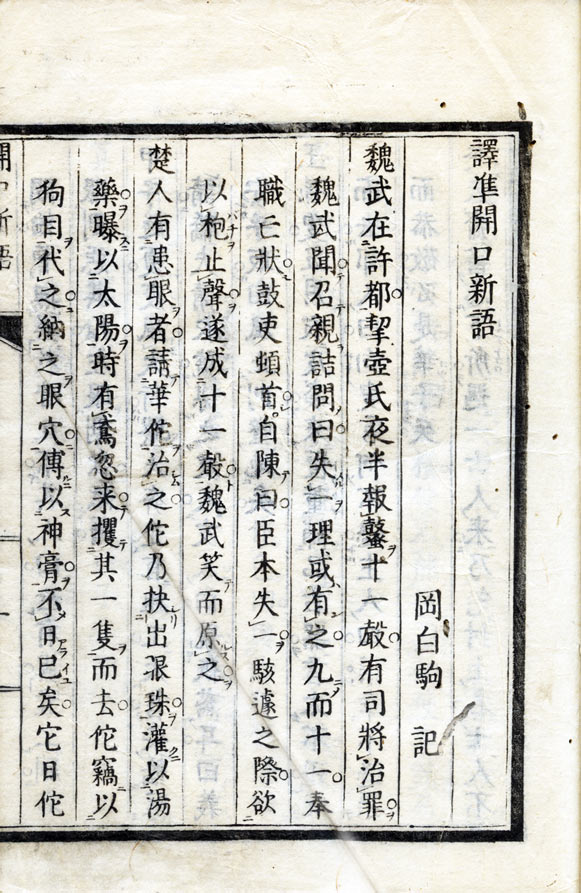 譯準開口新語
岡白駒 記
魏武在許都挈壺氏夜半報鼜十一嚴有司將治罪
魏武聞召親詰問曰失一理或有之九而十一奉
職亡狀鼓吏頓首自陳曰臣本失一駭遽之際欲
以枹止聲遂成十一嚴魏武笑而原之
楚人有患眼者請華佗治之佗乃抉出眼珠灌以湯
藥曝以太陽時有鳶忽来攫其一隻而去佗竊以
狗目代之納之眼穴傳以神膏不日已矣它日佗
開口新語